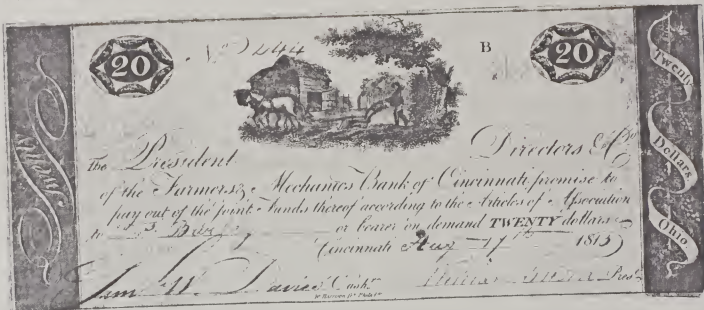 20 No 2444 B 20
The President Directors & Co.
of the Farmers & Mechanics Bank of Cincinnati promise to
pay out of the Joint Funds thereof according to the Articles of Association
to or bearer on demand TWENTY dollars
Cincinnati Aug 17th 1815
Saml W Davies Cash. Prest
Twenty
Twenty
Dollars
Ohio